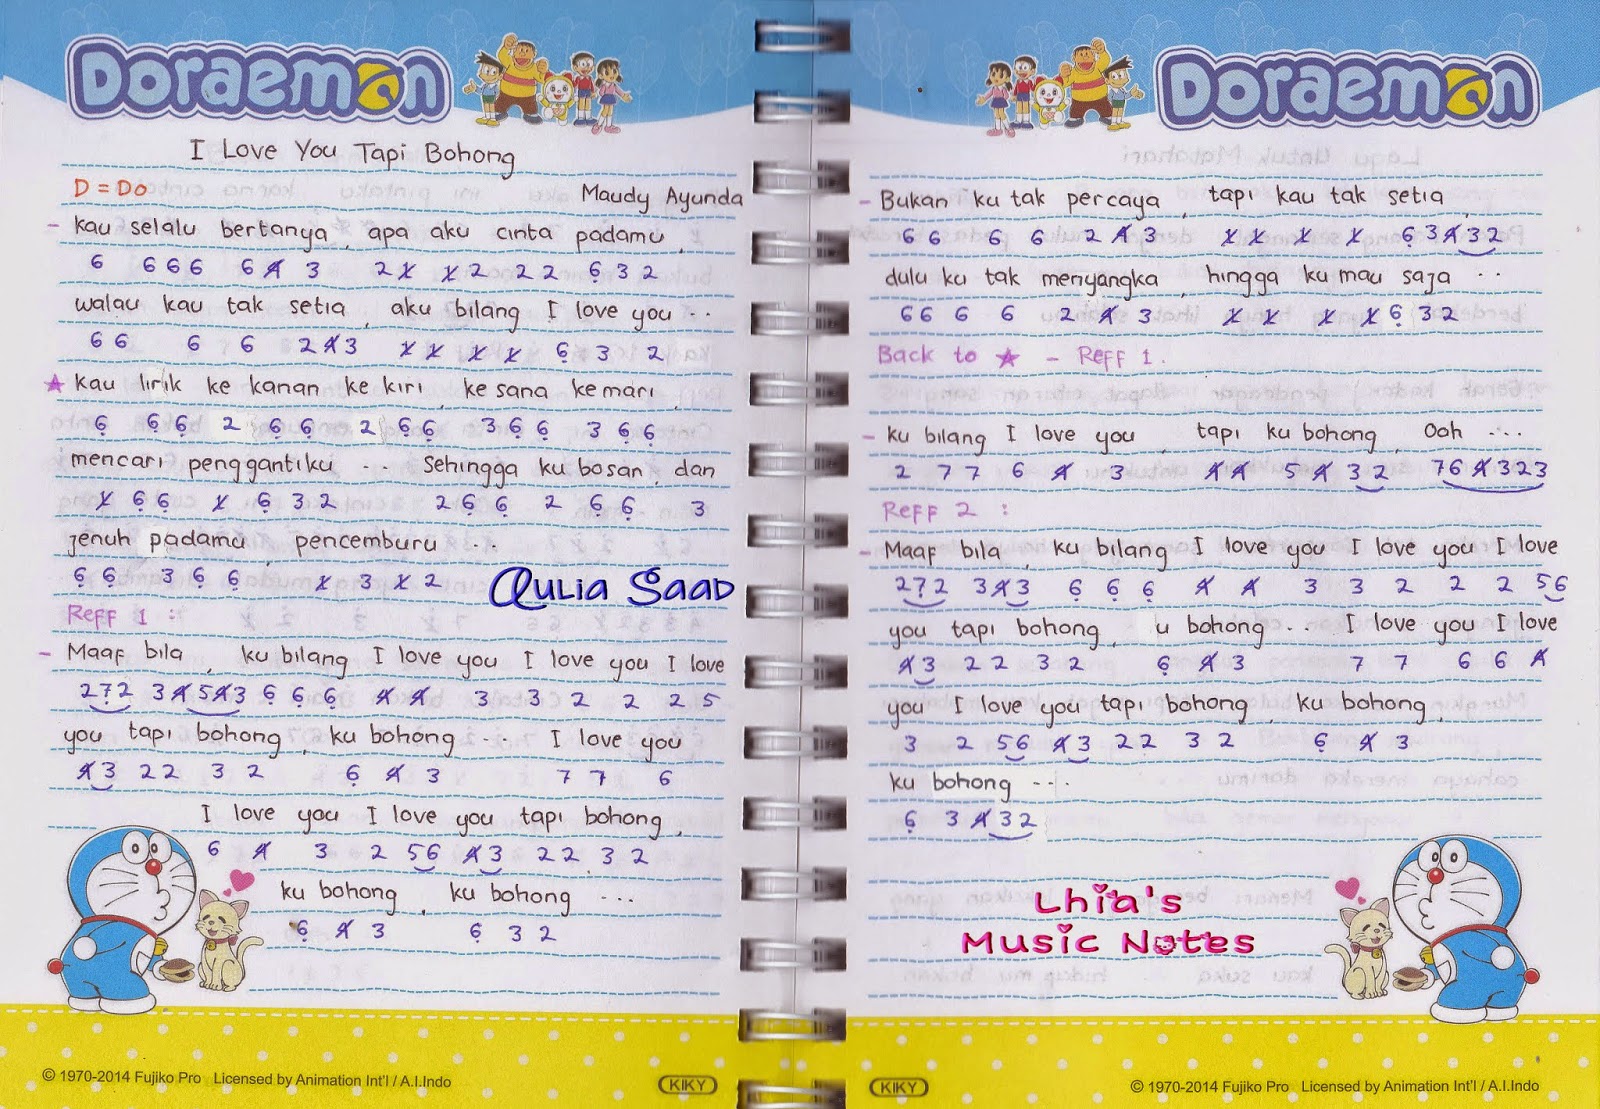 Doraemon
I Love You Tapi Bohong
D = Do
Maudy Ayunda
- kau selalu bertanya, apa aku cinta padamu,
6 666 64 3 21 12 22 632
walau kau tak setia, aku bilang I love you . .
66 6 6 243 1 1 1 1 6 3 2
★ kau lirik ke kanan ke kiri, ke sana ke mari,
6 66 2 66 2 66 366 366
mencari penggantiku . . . sehingga ku bosan, dan
1 66 1 632 266 2 66 3
jenuh padamu, pencemburu . . .
66 366 1 3 1 2
Qulia Saad
Reff 1 :
- Maaf bila, ku bilang I love you I love you I love
272 34543 6 6 6 4 4 3 3 2 2 2 5
you tapi bohong, ku bohong . . . I love you
43 22 3 2 6 4 3 7 7 6
I love you I love you tapi bohong,
6 4 3 2 56 43 22 3 2
ku bohong, ku bohong . . .
6 4 3 6 3 2
© 1970-2014 Fujiko Pro Licensed by Animation Int'l / A.I.Indo
KIKY
Doraemon
- Bukan ku tak percaya, tapi kau tak setia,
66 6 6 2 43 1 1 1 1 63432
dulu ku tak menyangka, hingga ku mau saja . .
66 6 6 2 4 3 1 1 1 1632
Back to ★ - Reff 1.
- ku bilang I love you, tapi ku bohong, Ooh . . .
2 77 6 4 3 44 5 4 32 764323
Reff 2 :
- Maaf bila, ku bilang I love you I love you I love
272 343 6 6 6 4 4 3 3 2 2 2 56
you tapi bohong, u bohong . . I love you I love
43 22 32 6 43 7 7 6 6 4
you I love you tapi bohong, ku bohong,
3 2 56 43 22 32 6 4 3
ku bohong . . .
6 3432
Lhia's
Music Notes
KIKY
© 1970-2014 Fujiko Pro Licensed by Animation Int'l / A.I.Indo